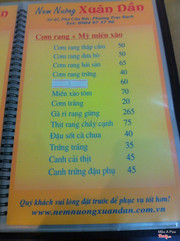 Nem Nướng Xuân Dần
Cơm rang + Mỳ miến xào
Cơm rang thập cẩm 50
Cơm rang dưa bò 45
Cơm rang hải sản 65
Cơm rang trứng 40
60
Miến xào tôm 70
Cơm trắng 20
Gà rì rang gừng 265
Thịt rang cháy cạnh 75
Đậu sốt cà chua 40
Trứng tráng 35
Canh cải thịt 45
Canh trứng đậu phụ 45
Quý khách vui lòng đặt trước để phục vụ tốt hơn!
www.nemnuongxuandan.com.vn